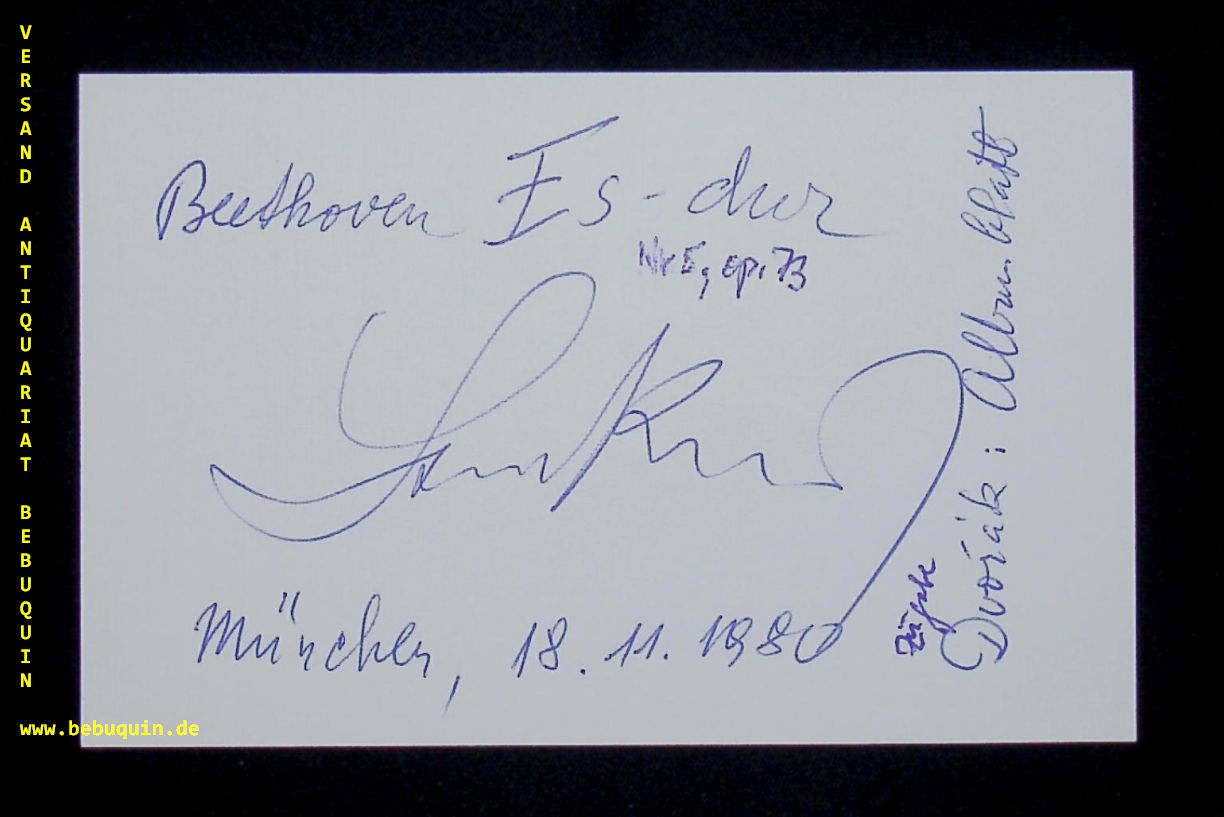 VERSAND ANTIQUARIAT BEBUQUIN
Beethoven Es-dur
Nr 5, op. 73
München, 18. 11. 1980
Zugabe
Dvořák: Albumblatt
www.bebuquin.de